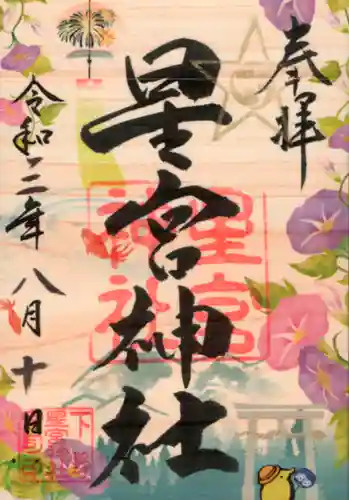 奉拝
星宮神社
令和二年八月十日
星宮
神社